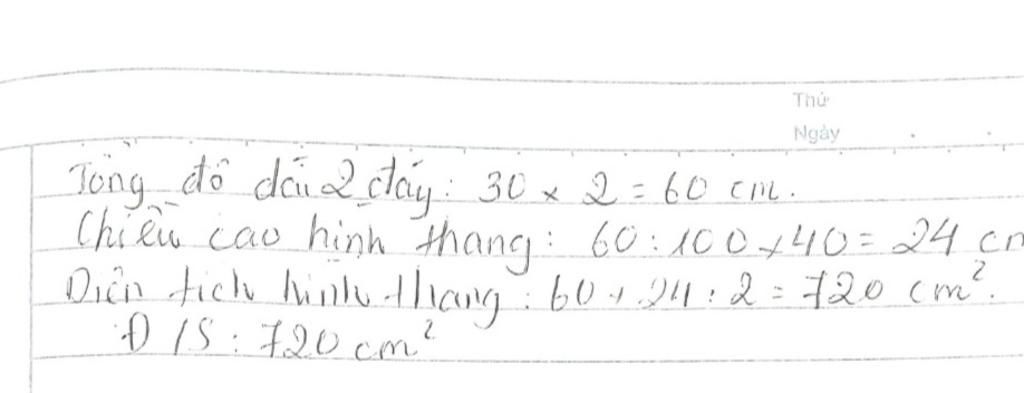 Thứ
Ngày
Tổng độ dài 2 đáy: 30 x 2 = 60 cm.
Chiều cao hình thang: 60 : 100 x 40 = 24 cm
Diện tích hình thang: 60 x 24 : 2 = 720 cm².
Đ/S: 720 cm²